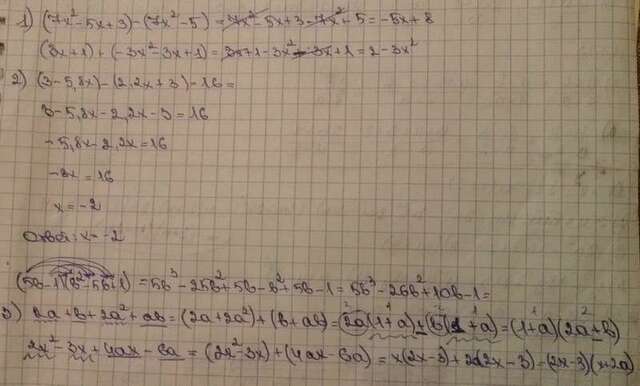 1) (7x²-5x+3)-(7x²-5)=7x²-5x+3-7x²+5=-5x+8
(3x+1)+(-3x²-3x+1)=3x+1-3x²-3x+1=2-3x²
2) (3-5,8x)-(2,2x+3)-16=
3-5,8x-2,2x-3=16
-5,8x-2,2x=16
-8x=16
x=-2
Ответ: x=-2
(5b-1)(b²-5b+1)=5b³-25b²+5b-b²+5b-1=5b³-26b²+10b-1=
3) 2a+b+2a²+ab=(2a+2a²)+(b+ab)=2a(1+a)+b(1+a)=(1+a)(2a+b)
2x²-3x+4ax-6a=(2x²-3x)+(4ax-6a)=x(2x-3)+2a(2x-3)-(2x-3)(x+2a)